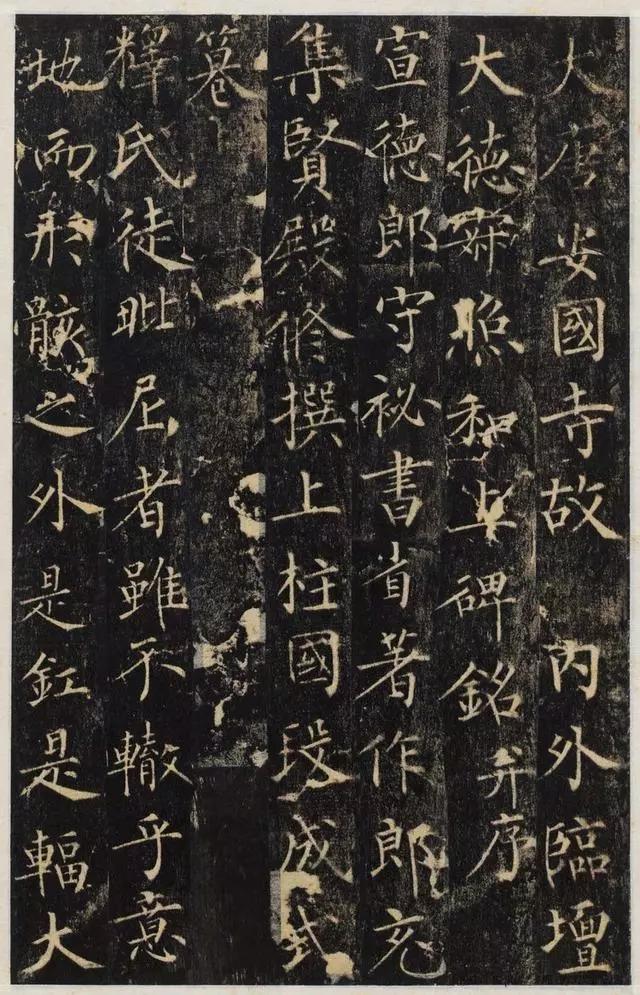 大唐安國寺故 内外臨壇
大德寂照和上碑銘并序
宣德郎守祕書省著作郎充
集賢殿修撰上柱國段成式
篹
釋氏徒毗尼者雖不轍乎意
地而形骸之外是釭是輻大